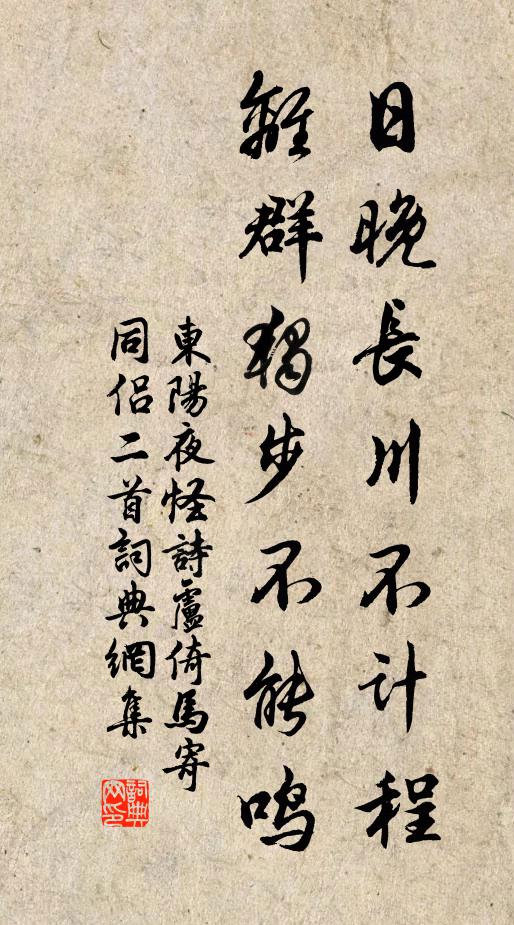 日晚長川不計程
離群獨步不能鳴
東陽夜怪詩盧倚馬寄
同侶二首詞典網集
詞典
网印